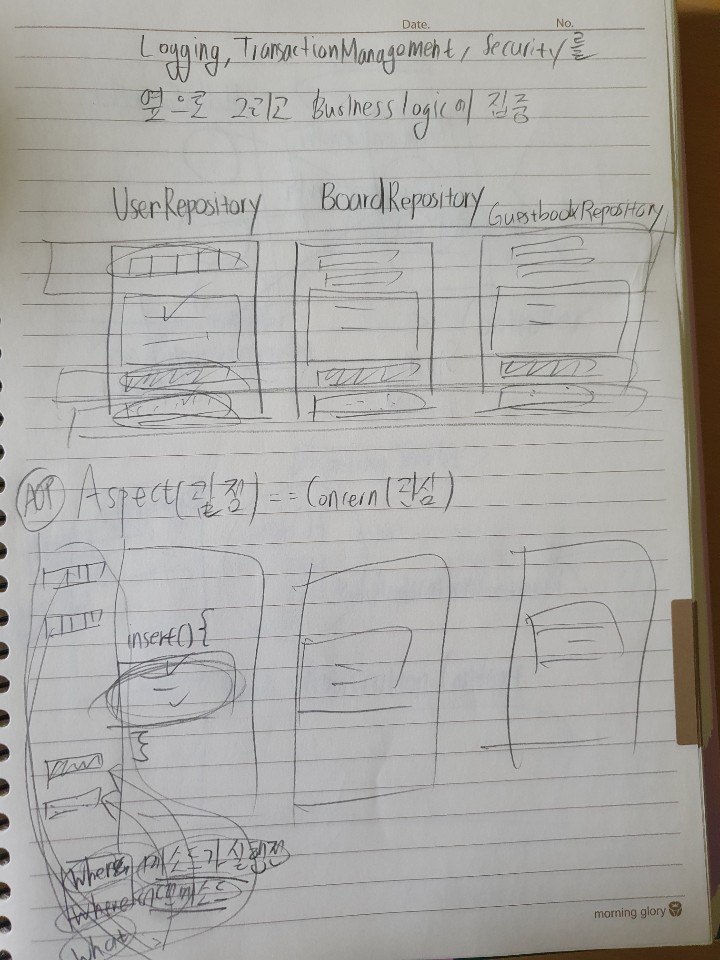 Date.
No.
Logging, TransactionManagement, Security를
옆으로 그리고 Businesslogic이 집중
UserRepository
BoardRepository
GuestbookRepository
AOP
Aspect(관점) == Concern(관심)
insert() {
}
메소드가 실행전
메소드
What
morning glory